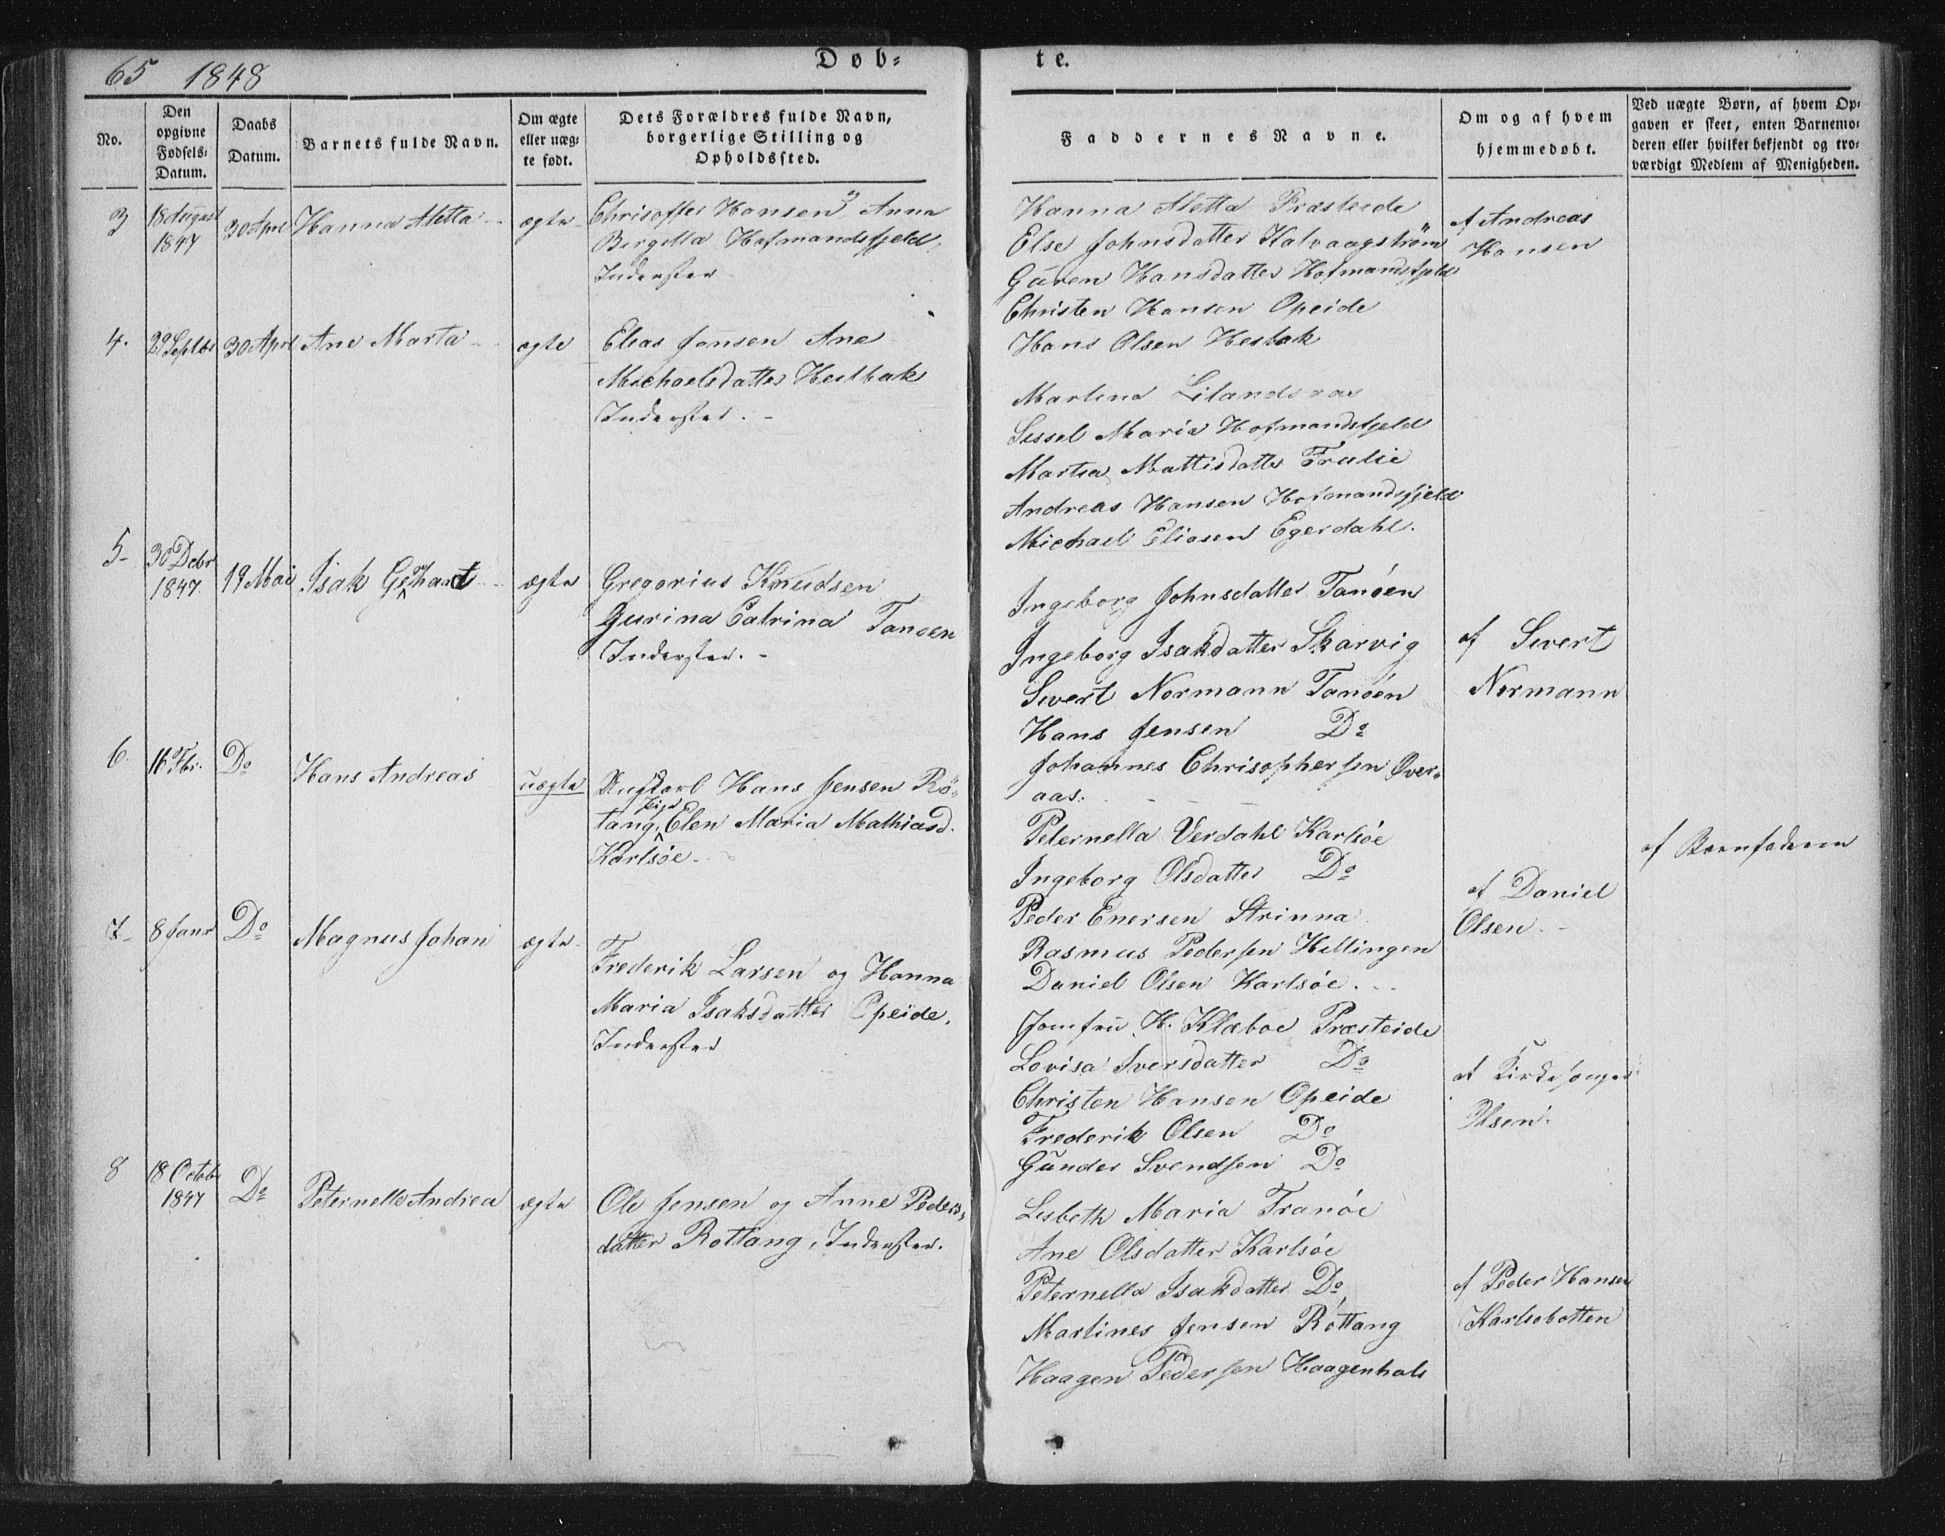 65 1848
Døb-
te.
No.
Den opgivne Fødsels-Datum.
Daabs Datum.
Barnets fulde Navn.
Om ægte eller uæg-te født.
Dets Forældres fulde Navn, borgerlige Stilling og Opholdssted.
Faddernes Navne.
Om og af hvem hjemmedøbt.
Ved uægte Børn, af hvem Op-gaven er skeet, enten Barnemo-deren eller hvilket bekjendt og tro-værdigt Medlem af Menigheden.
3 18 August 1847 30 Apr Hanna Aletta ægte
Christoffer Hansen Anna
Hofmandsfjeld
Inderster
Hanna Aletta Præsteide
Else Johnsdatter Kalvaagstrøm
Guren Hansdatter Hofmandsfjeld
Christen Hansen Opeide
Hans Olsen Hesbak
af Andreas
Hansen
4. 29 Septbr 30 Apr Ane Marta ægte
Elias Jensen Ane
Michaelsdatter Hestbak
Inderster.
Martina
Sessel Maria Hofmandsfjeld
Martea Mattisdatter
Andreas Hansen Hofmandsfjeld
Michael Eliasen Egerdahl.
5- 30 Debr 1847. 19 Mai Isak Gerhard ægte
Gregorius Knudsen
Gurina Catrina Tanøen
Inderster.
Ingeborg Johnsdatter Tanøen
Ingeborg Isakdatter Skarvig
Sivert Normann Tanøen
Hans Jensen Do
Johannes Christophersen Over-
aas.
af Sivert
Normann
6. 16 Fbr. Do Hans Andreas uægte
Ungkarl Hans Jensen Rø-
tang, Pige Elen Maria Mathiasd.
Karlsøe
Peternella Verdahl Karlsøe
Ingeborg Olsdatter Do
Peder Enersen Strinna
Rasmus Pedersen Hellingen
Daniel Olsen Karlsøe.
af Daniel
Olsen.
af Barnfaderen
7- 8 Janr Do Magnus Johan ægte
Frederik Larsen og Hanna
Maria Isaksdatter Opeide,
Inderster
Jomfru H. Klæboe Præsteide
Lovisa Iversdatter Do
Christen Hansen Opeide
Frederik Olsen Do
Gunder Svendsen Do
af Kirkesanger
Olsen.
8 18 Octob 1847 Do Peternella Andrea ægte
Ole Jensen og Anne Peders-
datter Rottang, Inderster.
Lisbeth Maria Tranøe
Ane Olsdatter Karlsøe
Peternella Isakdatter Do
Martines Jensen Røttang
Haagen Pedersen Haagenhals
af Peder Hansen
Karlsobotten